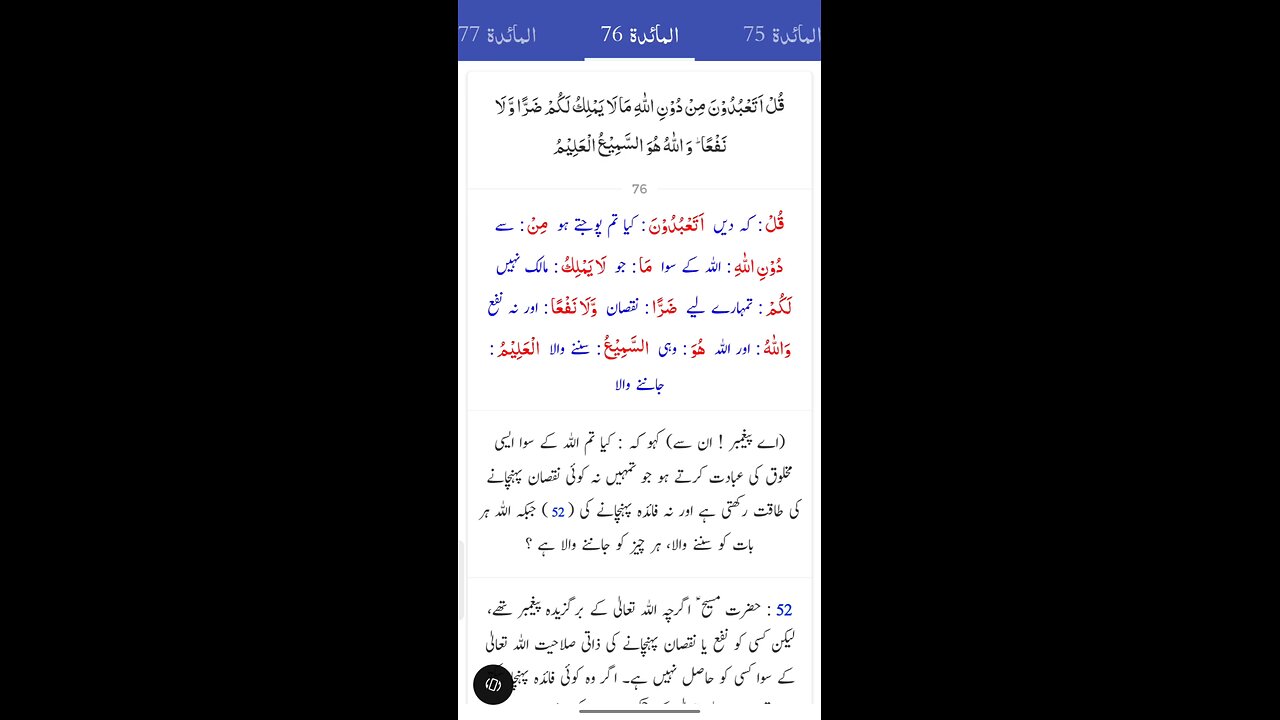 المائدة 75 المائدة 76 المائدة 77
قُلْ اَتَعْبُدُوْنَ مِنْ دُوْنِ اللّٰهِ مَا لَا يَمْلِكُ لَكُمْ ضَرًّا وَّلَا
نَفْعًا ؕ وَاللّٰهُ هُوَ السَّمِيْعُ الْعَلِيْمُ
76
قُلْ : کہ دیں اَتَعْبُدُوْنَ : کیا تم پوجتے ہو مِنْ : سے
دُوْنِ اللّٰهِ : اللہ کے سوا مَا : جو لَا يَمْلِكُ : مالک نہیں
لَكُمْ : تمہارے لیے ضَرًّا : نقصان وَّلَا نَفْعًا : اور نہ نفع
وَاللّٰهُ : اور اللہ هُوَ : وہی السَّمِيْعُ : سننے والا الْعَلِيْمُ :
جاننے والا
(اے پیغمبر ! ان سے) کہو کہ : کیا تم اللہ کے سوا ایسی
مخلوق کی عبادت کرتے ہو جو تمہیں نہ کوئی نقصان پہنچانے
کی طاقت رکھتی ہے اور نہ فائدہ پہنچانے کی (52) جبکہ اللہ ہر
بات کو سننے والا، ہر چیز کو جاننے والا ہے ؟
52 : حضرت مسیح ؑ اگرچہ اللہ تعالیٰ کے برگزیدہ پیغمبر تھے،
لیکن کسی کو نفع یا نقصان پہنچانے کی ذاتی صلاحیت اللہ تعالیٰ
کے سوا کسی کو حاصل نہیں ہے۔ اگر وہ کوئی فائدہ